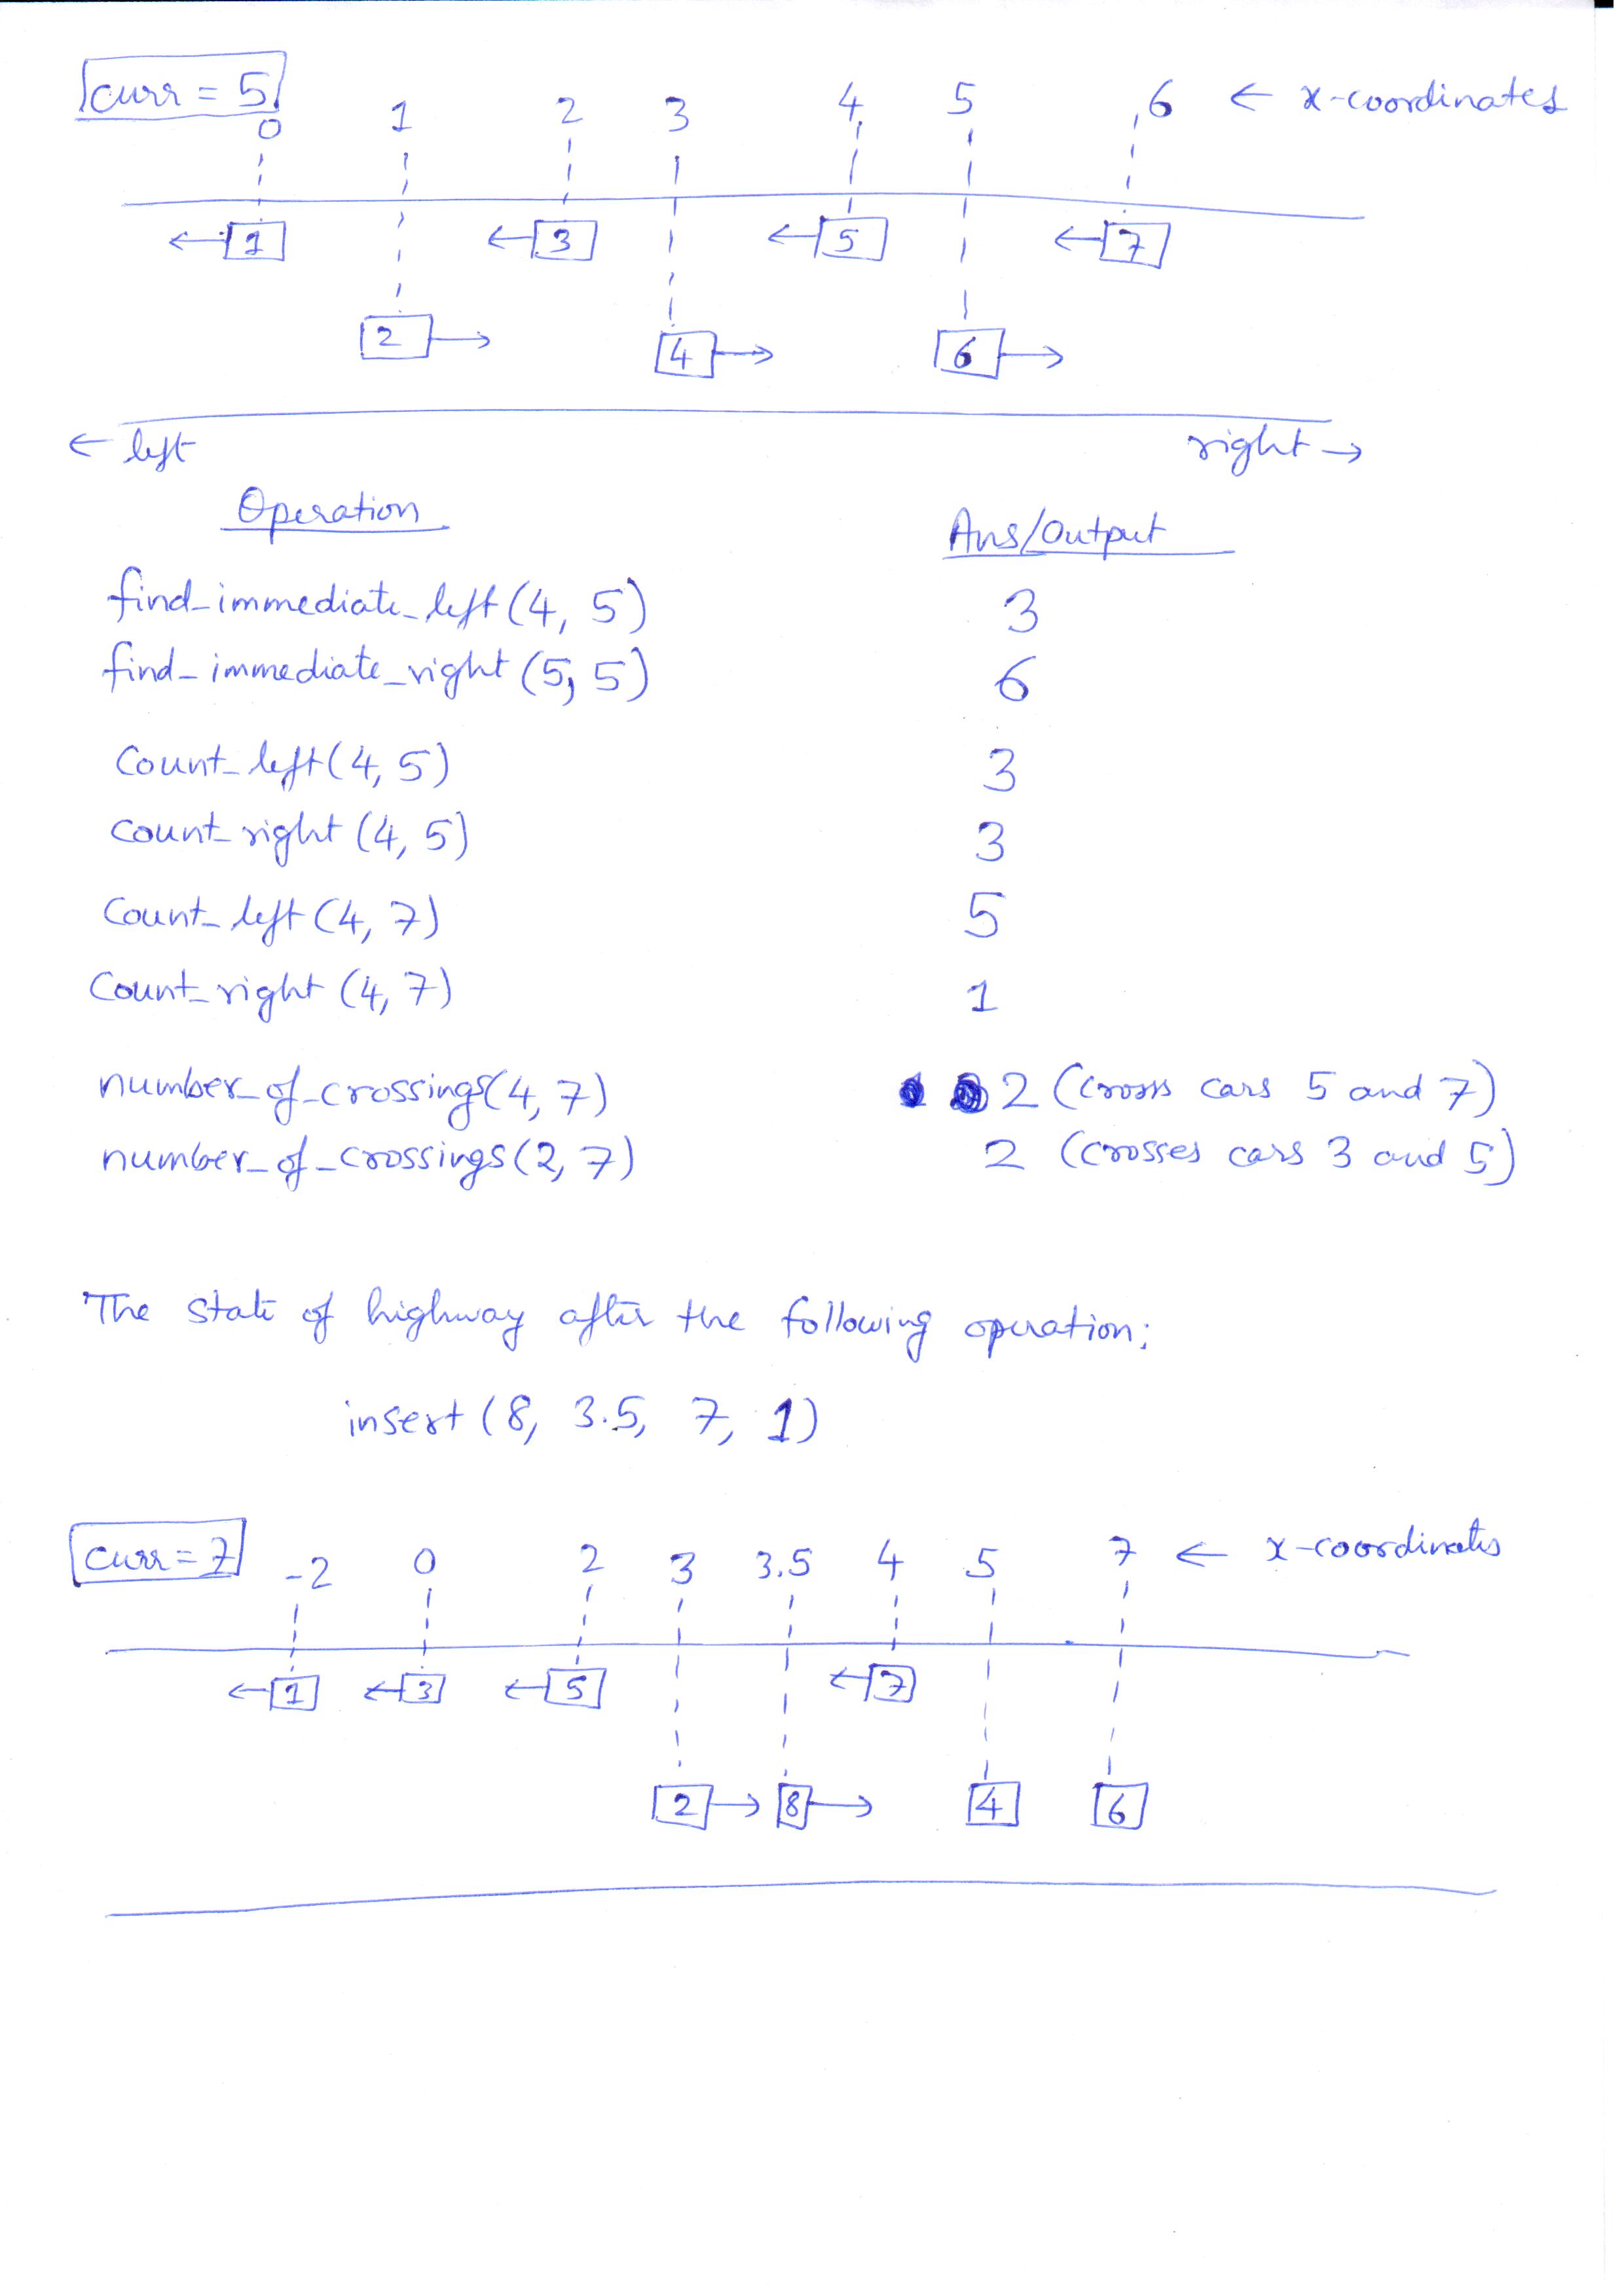 curr = 5
0 1 2 3 4 5 6 ← x-coordinates
← 1 ← 3 ← 5 ← 7
2 → 4 → 6 →
← left right →
Operation Ans/Output
find_immediate_left (4, 5) 3
find_immediate_right (5, 5) 6
Count_left (4, 5) 3
count_right (4, 5) 3
Count_left (4, 7) 5
Count_right (4, 7) 1
number_of_crossings(4, 7) 2 (Cross cars 5 and 7)
number_of_crossings (2, 7) 2 (Crosses cars 3 and 5)
The state of highway after the following operation;
insert (8, 3.5, 7, 1)
curr = 7 -2 0 2 3 3.5 4 5 7 ← x-coordinates
← 1 ← 3 ← 5 ← 7
2 → 8 → 4 6